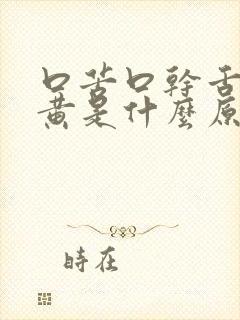 口苦口幹舌
黄是什麽原
時在